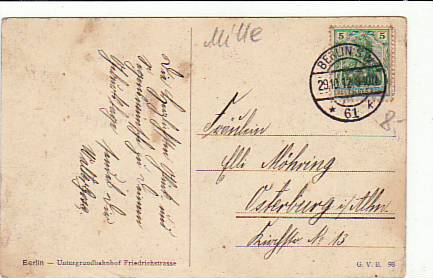 Mitte
5 5
BERLIN S.W.
29.10.12
* 61 k
8,-
Die herzlichsten Glück und
Segenswünsche zu Deinem
Geburtstage sendet Dir
Fräulein
Elli Möhring
Osterburg i/Altm.
Kirchstr. No 13
Berlin – Untergrundbahnhof Friedrichstrasse
G. V. B. 98